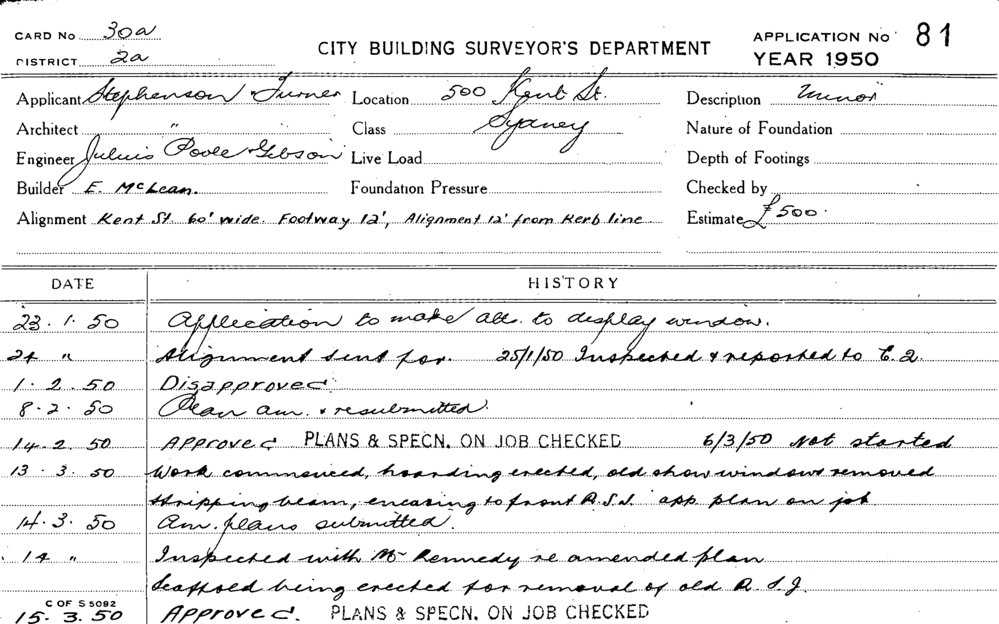 CARD No 30a
DISTRICT 2a
CITY BUILDING SURVEYOR'S DEPARTMENT
APPLICATION No 81
YEAR 1950
Applicant Stephenson Turner Location 500 Kent St. Description Minor
Architect " Class Sydney Nature of Foundation
Engineer Julius Poole Gibson Live Load Depth of Footings
Builder E. McLean. Foundation Pressure Checked by
Alignment Kent St 60' wide. Footway 12', Alignment 12' from Kerb line Estimate £500.
DATE HISTORY
23.1.50 Application to make alts. to display window.
24 " Alignment sent for. 25/1/50 Inspected & reported to
1.2.50 Disapproved
8.2.50 Plan am. & resubmitted.
14.2.50 Approved PLANS & SPECN. ON JOB CHECKED 6/3/50 Not started
13.3.50 Work commenced, hoarding erected, old show windows removed
stripping beam, encasing to front R.S.J. app. plan on job
14.3.50 Am. plans submitted.
14 " Inspected with Mr Kennedy re amended plan
Scaffold being erected for removal of old R.S.J.
C OF S 5092
15.3.50 Approved. PLANS & SPECN. ON JOB CHECKED